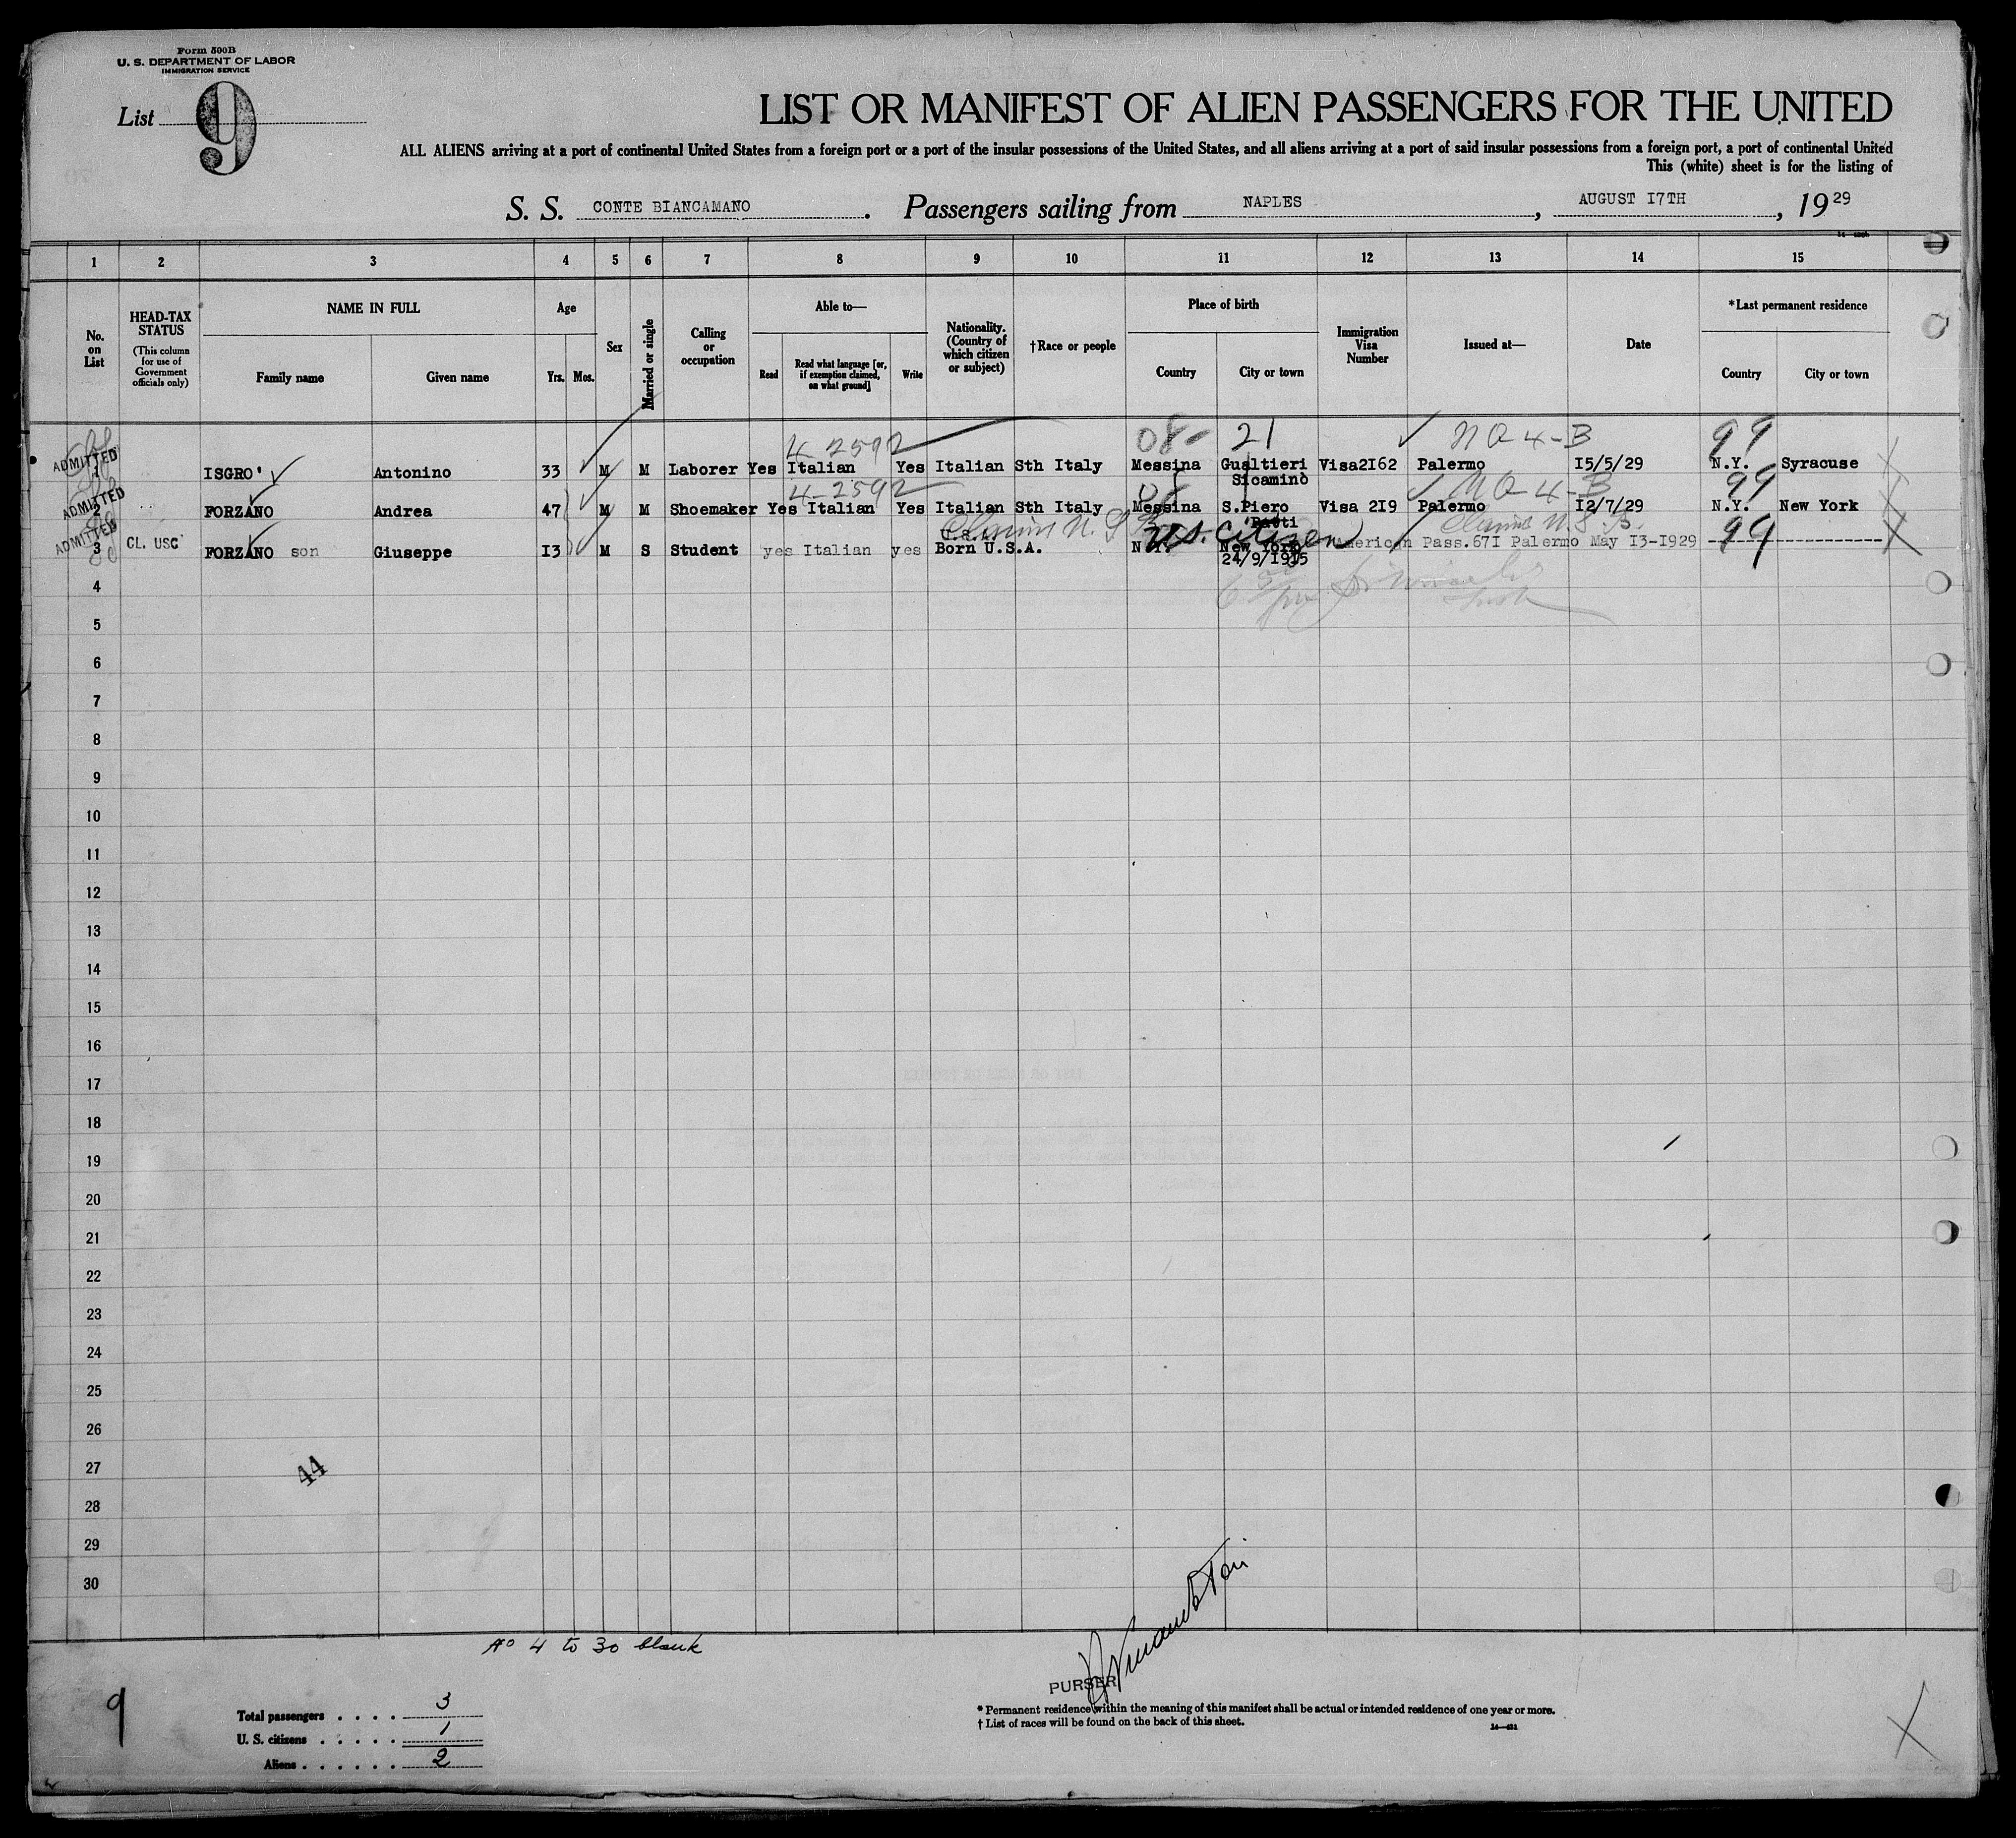 Form 500B
U. S. DEPARTMENT OF LABOR
IMMIGRATION SERVICE
List 9
LIST OR MANIFEST OF ALIEN PASSENGERS FOR THE UNITED
ALL ALIENS arriving at a port of continental United States from a foreign port or a port of the insular possessions of the United States, and all aliens arriving at a port of said insular possessions from a foreign port, a port of continental United
This (white) sheet is for the listing of
S. S. CONTE BIANCAMANO . Passengers sailing from NAPLES , AUGUST I7TH , 1929
1 2 3 4 5 6 7 8 9 10 11 12 13 14 15
No. on List
HEAD-TAX STATUS
(This column for use of Government officials only)
NAME IN FULL
Family name
Given name
Age
Yrs. Mos.
Sex
Married or single
Calling or occupation
Able to—
Read
Read what language [or, if exemption claimed, on what ground]
Write
Nationality. (Country of which citizen or subject)
†Race or people
Place of birth
Country
City or town
Immigration Visa Number
Issued at—
Date
*Last permanent residence
Country
City or town
4-2592 08- 21 NQ4-B 99
ADMITTED 1 ISGRO' Antonino 33 M M Laborer Yes Italian Yes Italian Sth Italy Messina Gualtieri Visa2I62 Palermo I5/5/29 N.Y. Syracuse
Sicamino
4-2592 08 NQ4-B 99
ADMITTED 2 FORZANO Andrea 47 M M Shoemaker Yes Italian Yes Italian Sth Italy Messina S.Piero Visa 2I9 Palermo I2/7/29 N.Y. New York
Patti
Claims U.S.B. U.S. Citizen Claims U.S.B. 99
ADMITTED 3 CL. USC FORZANO son Giuseppe I3 M S Student yes Italian yes Born U.S.A. N.Y. New York American Pass.67I Palermo May I3-I929
24/9/1915
4
5
6
7
8
9
10
11
12
13
14
15
16
17
18
19
20
21
22
23
24
25
26
27
44
28
29
30
No 4 to 30 blank
PURSER
9
Total passengers . . . . 3
U. S. citizens . . . . . 1
Aliens . . . . . . 2
* Permanent residence within the meaning of this manifest shall be actual or intended residence of one year or more.
† List of races will be found on the back of this sheet.
14—421